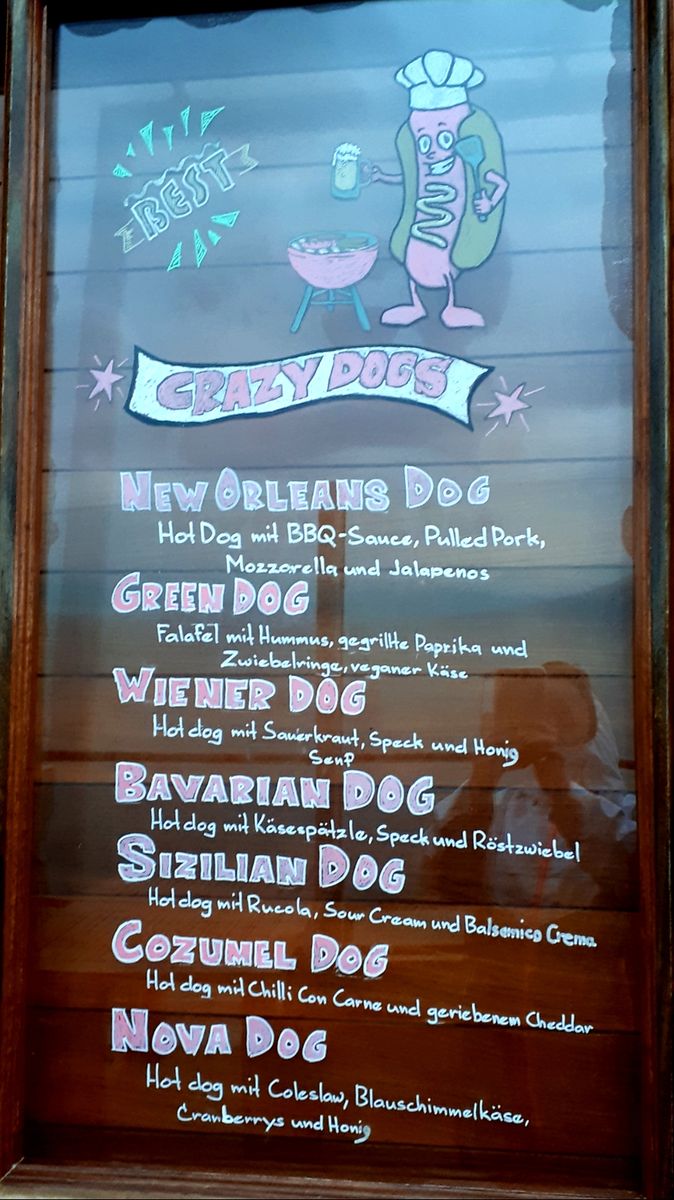 BEST
CRAZY DOGS
NEW ORLEANS DOG
Hot Dog mit BBQ-Sauce, Pulled Pork,
Mozzarella und Jalapenos
GREEN DOG
Falafel mit Hummus, gegrillte Paprika und
Zwiebelringe, veganer Käse
WIENER DOG
Hot dog mit Sauerkraut, Speck und Honig
Senf
BAVARIAN DOG
Hot dog mit Käsespätzle, Speck und Röstzwiebel
SIZILIAN DOG
Hot dog mit Rucola, Sour Cream und Balsamico Crema
COZUMEL DOG
Hot dog mit Chilli Con Carne und geriebenem Cheddar
NOVA DOG
Hot dog mit Coleslaw, Blauschimmelkäse,
Cranberrys und Honig